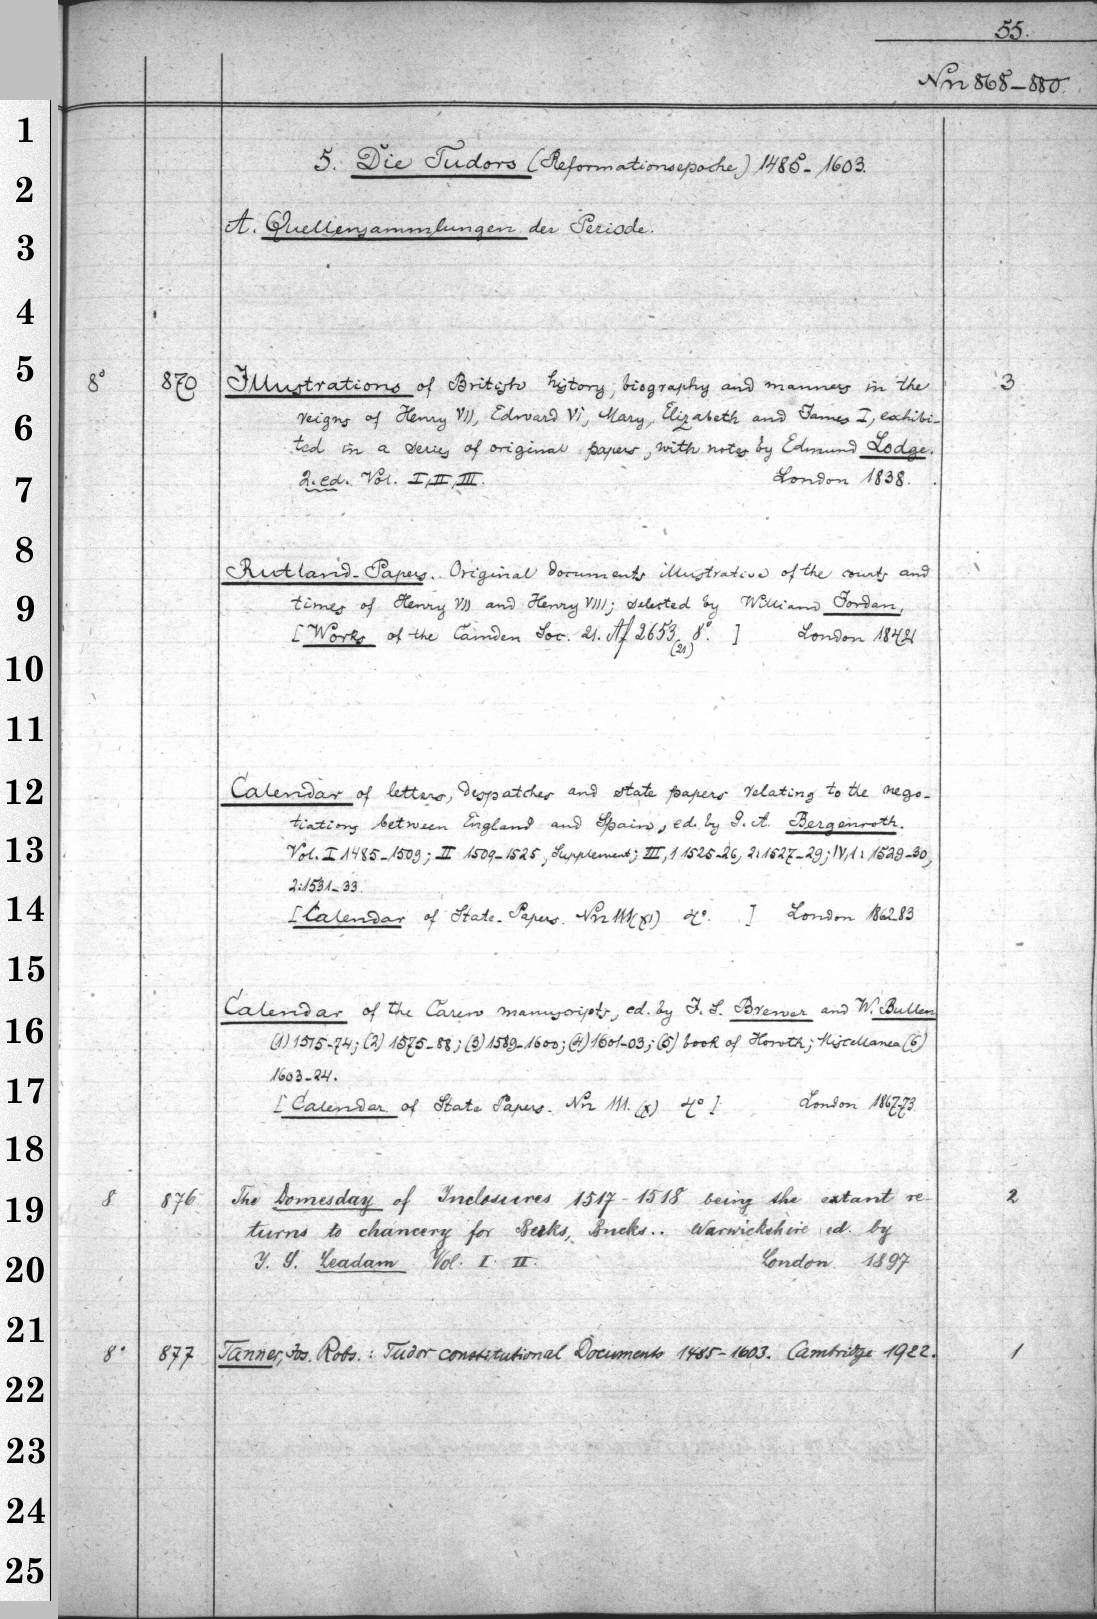 55.
Nn 868-880.
5. Die Tudors (Reformationsepoche) 1485-1603.
A. Quellensammlungen der Periode.
8° 870 Illustrations of British history, biography and manners in the 3
reigns of Henry VII, Edward VI, Mary, Elizabeth and James I, exhibi-
ted in a series of original papers, with notes by Edmund Lodge.
2. ed. Vol. I, II, III. London 1838.
Rutland-Papers. Original documents illustrative of the courts and
times of Henry VII and Henry VIII; selected by William Jordan.
[Works of the Camden Soc. 21. Af 2653 (21) 8°. ] London 1842
Calendar of letters, despatches and state papers relating to the nego-
tiations between England and Spain, ed. by G. A. Bergenroth.
Vol. I 1485-1509; II 1509-1525, Supplement; III, 1 1525-26, 2: 1527-29; IV, 1: 1529-30,
2: 1531-33.
[Calendar of State-Papers. Nn 111 (XI) 4°. ] London 1862-83
Calendar of the Carew manuscripts, ed. by J. S. Brewer and W. Bullen
(1) 1515-74; (2) 1575-88; (3) 1589-1600; (4) 1601-03; (5) book of Howth; Miscellanea (6)
1603-24.
[Calendar of State Papers. Nn 111. (X) 4° ] London 1867-73
8 876 The Domesday of Inclosures 1517-1518 being the extant re- 2
turns to chancery for Berks, Bucks.. Warwickshire ed. by
I. S. Leadam Vol. I. II. London 1897
8° 877 Tanner, Jos. Robs.: Tudor constitutional Documents 1485-1603. Cambridge 1922. 1
1
2
3
4
5
6
7
8
9
10
11
12
13
14
15
16
17
18
19
20
21
22
23
24
25